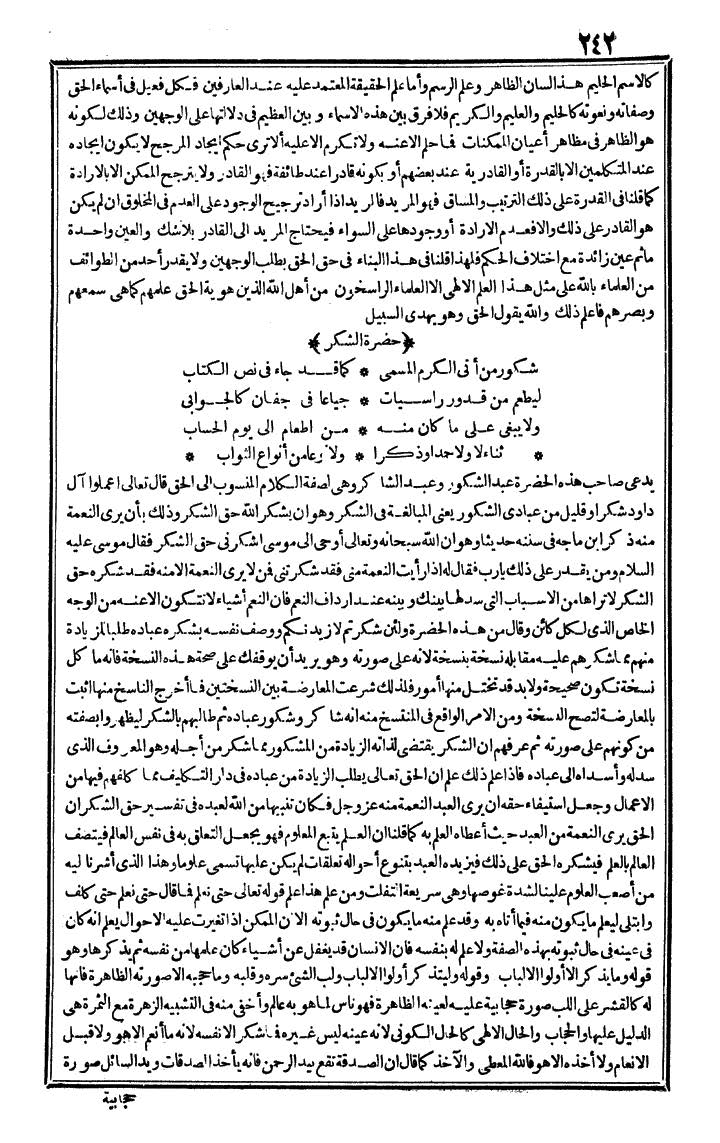 ٢٤٢
كالاسم الحليم هذا لسان الظاهر وعلم الرسم وأما علم الحقيقة المعتمد عليه عند العارفين فكل فعيل فى أسماء الحق
وصفاته ونعوته كالحليم والعليم والكريم فلا فرق بين هذه الاسماء وبين العظيم فى دلالتها على الوجهين وذلك لكونه
هو الظاهر فى مظاهر أعيان الممكنات فما حلم الا عنه ولا تكرم الا عليه ألا ترى حكم ايجاد المرجح لا يكون ايجاده
عند المتكلمين الا بالقدرة أو القادرية عند بعضهم أو بكونه قادرا عند طائفة فهو القادر ولا يترجح الممكن الا بالارادة
كما قلنا فى القدرة على ذلك الترتيب والمساق فهو المريد فالمريد اذا أراد ترجيح الوجود على العدم فى المخلوق ان لم يكن
هو القادر على ذلك والا فعدم الارادة أو وجودها على السواء فيحتاج المريد الى القادر بلا شك والعين واحدة
ما ثم عين زائدة مع اختلاف الحكم فلهذا قلنا فى هذا البناء فى حق الحق بطلب الوجهين ولا يقدر أحد من الطوائف
من العلماء بالله على مثل هذا العلم الالهى الا العلماء الراسخون من أهل الله الذين هوية الحق علمهم كما هى سمعهم
وبصرهم فاعلم ذلك والله يقول الحق وهو يهدى السبيل
﴿حضرة الشكر﴾
شكور من أتى الكرم المسمى * كما قد جاء فى نص الكتاب
ليطعم من قدور راسيات * جياعا فى جفان كالجوابى
ولا يبغى على ما كان منه * من اطعام الى يوم الحساب
* ثناء لا ولا حمدا وذكرا * ولا نوعا من أنواع الثواب *
يدعى صاحب هذه الحضرة عبد الشكور وعبد الشاكر وهى لصفة الكلام المنسوب الى الحق قال تعالى اعملوا آل
داود شكرا وقليل من عبادى الشكور يعنى المبالغة فى الشكر وهو ان يشكر الله حق الشكر وذلك بأن يرى النعمة
منه ذكر ابن ماجه فى سننه حديثا وهو ان الله سبحانه وتعالى أوحى الى موسى اشكرنى حق الشكر فقال موسى عليه
السلام ومن يقدر على ذلك يارب فقال له اذا رأيت النعمة منى فقد شكرتنى فمن لا يرى النعمة الا منه فقد شكره حق
الشكر لا تراها من الاسباب التى سدلها بينك وبينه عند ارداف النعم فان النعم أشياء لا تتكون الا عنه من الوجه
الخاص الذى لكل كائن وقال من هذه الحضرة ولئن شكرتم لازيدنكم ووصف نفسه بشكره عباده طلبا للزيادة
منهم مما شكرهم عليه مقابلة نسخة بنسخة لانه على صورته وهو يريد أن يوقفك على صحة هذه النسخة فانه ما كل
نسخة تكون صحيحة ولا بد قد تختل منها أمور فلذلك شرعت المعارضة بين النسختين فما أخرج الناسخ منها اثبت
بالمعارضة لتصح النسخة ومن الامر الواقع فى المنتسخ منه انه شاكر وشكور عباده ثم طالبهم بالشكر ليظهروا بصفته
من كونهم على صورته ثم عرفهم ان الشكر يقتضى لذاته الزيادة من المشكور مما شكر من أجله وهو المعروف الذى
سدله وأسداه الى عباده فاذا علم ذلك علم ان الحق تعالى يطلب الزيادة من عباده فى دار التكليف مما كلفهم فيها من
الاعمال وجعل استيفاء حقه ان يرى العبد النعمة منه عز وجل فكان تنبيها من الله لعبده فى تفسير حق الشكر ان
الحق يرى النعمة من العبد حيث أعطاه العلم به كما قلنا ان العلم يتبع المعلوم فهو يجعل التعلق به فى نفس العالم فيتصف
العالم بالعلم فيشكره الحق على ذلك فيزيده العبد بتنوع أحواله تعلقات لم يكن عليها تسمى علوما وهذا الذى أشرنا اليه
من أصعب العلوم علينا لشدة غوصها وهى سريعة التفلت ومن علم هذا علم قوله تعالى حتى نعلم فما قال حتى نعلم حتى كلف
وابتلى ليعلم ما يكون منه فيما أتاه به وقد علم منه ما يكون فى حال ثبوته الا ان الممكن اذا تغيرت عليه الاحوال يعلم انه كان
فى عينه فى حال ثبوته بهذه الصفة ولا علم له بنفسه فان الانسان قد يغفل عن أشياء كان علمها من نفسه ثم يذكرها وهو
قوله وما يذكر الا أولوا الالباب وقوله وليتذكر أولوا الالباب ولب الشئ سره وقلبه وما حجبه الا صورته الظاهرة فانها
له كالقشر على اللب صورة حجابية عليه لعينه الظاهرة فهو ناس لما هو به عالم وأخفى منه فى التشبيه الزهرة مع الثمرة هى
الدليل عليها والحجاب والحال الالهى كالحال الكونى لانه عينه ليس غيره فما شكر الا نفسه لانه ما أنعم الا هو ولا قبل
الانعام ولا أخذه الا هو فالله المعطى والآخذ كما قال ان الصدقة تقع بيد الرحمن فانه يأخذ الصدقات ويد السائل صورة
حجابية